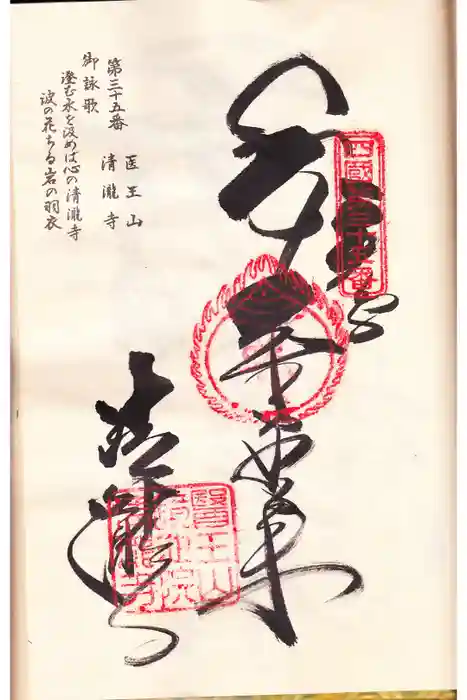 四國第三十五番
薬師如来
清瀧寺
醫王山
鏡池院
清瀧寺
第三十五番 医王山
清瀧寺
御詠歌
澄む水を汲めば心の清瀧寺
波の花ちる岩の羽衣